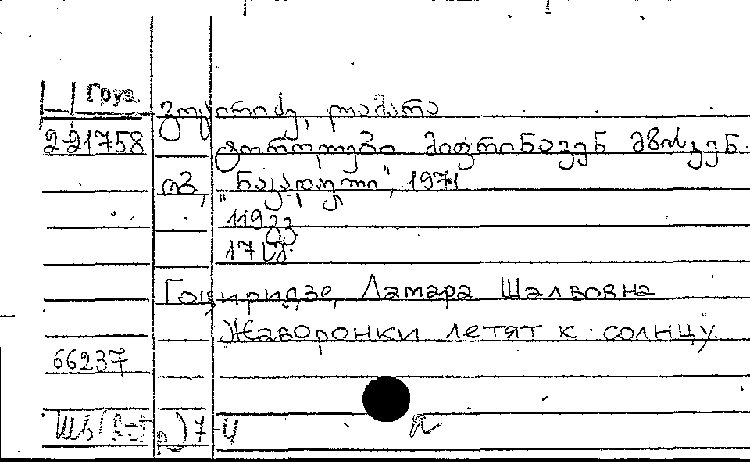 Груз.
გოცირიძე, ლამარა
2-21758
ტოროლები მიფრინავენ მზისკენ.
თბ, "ნაკადული", 1971
119 გვ
17 სმ.
Гоциридзе, Ламара Шалвовна
Жаворонки летят к солнцу
66237